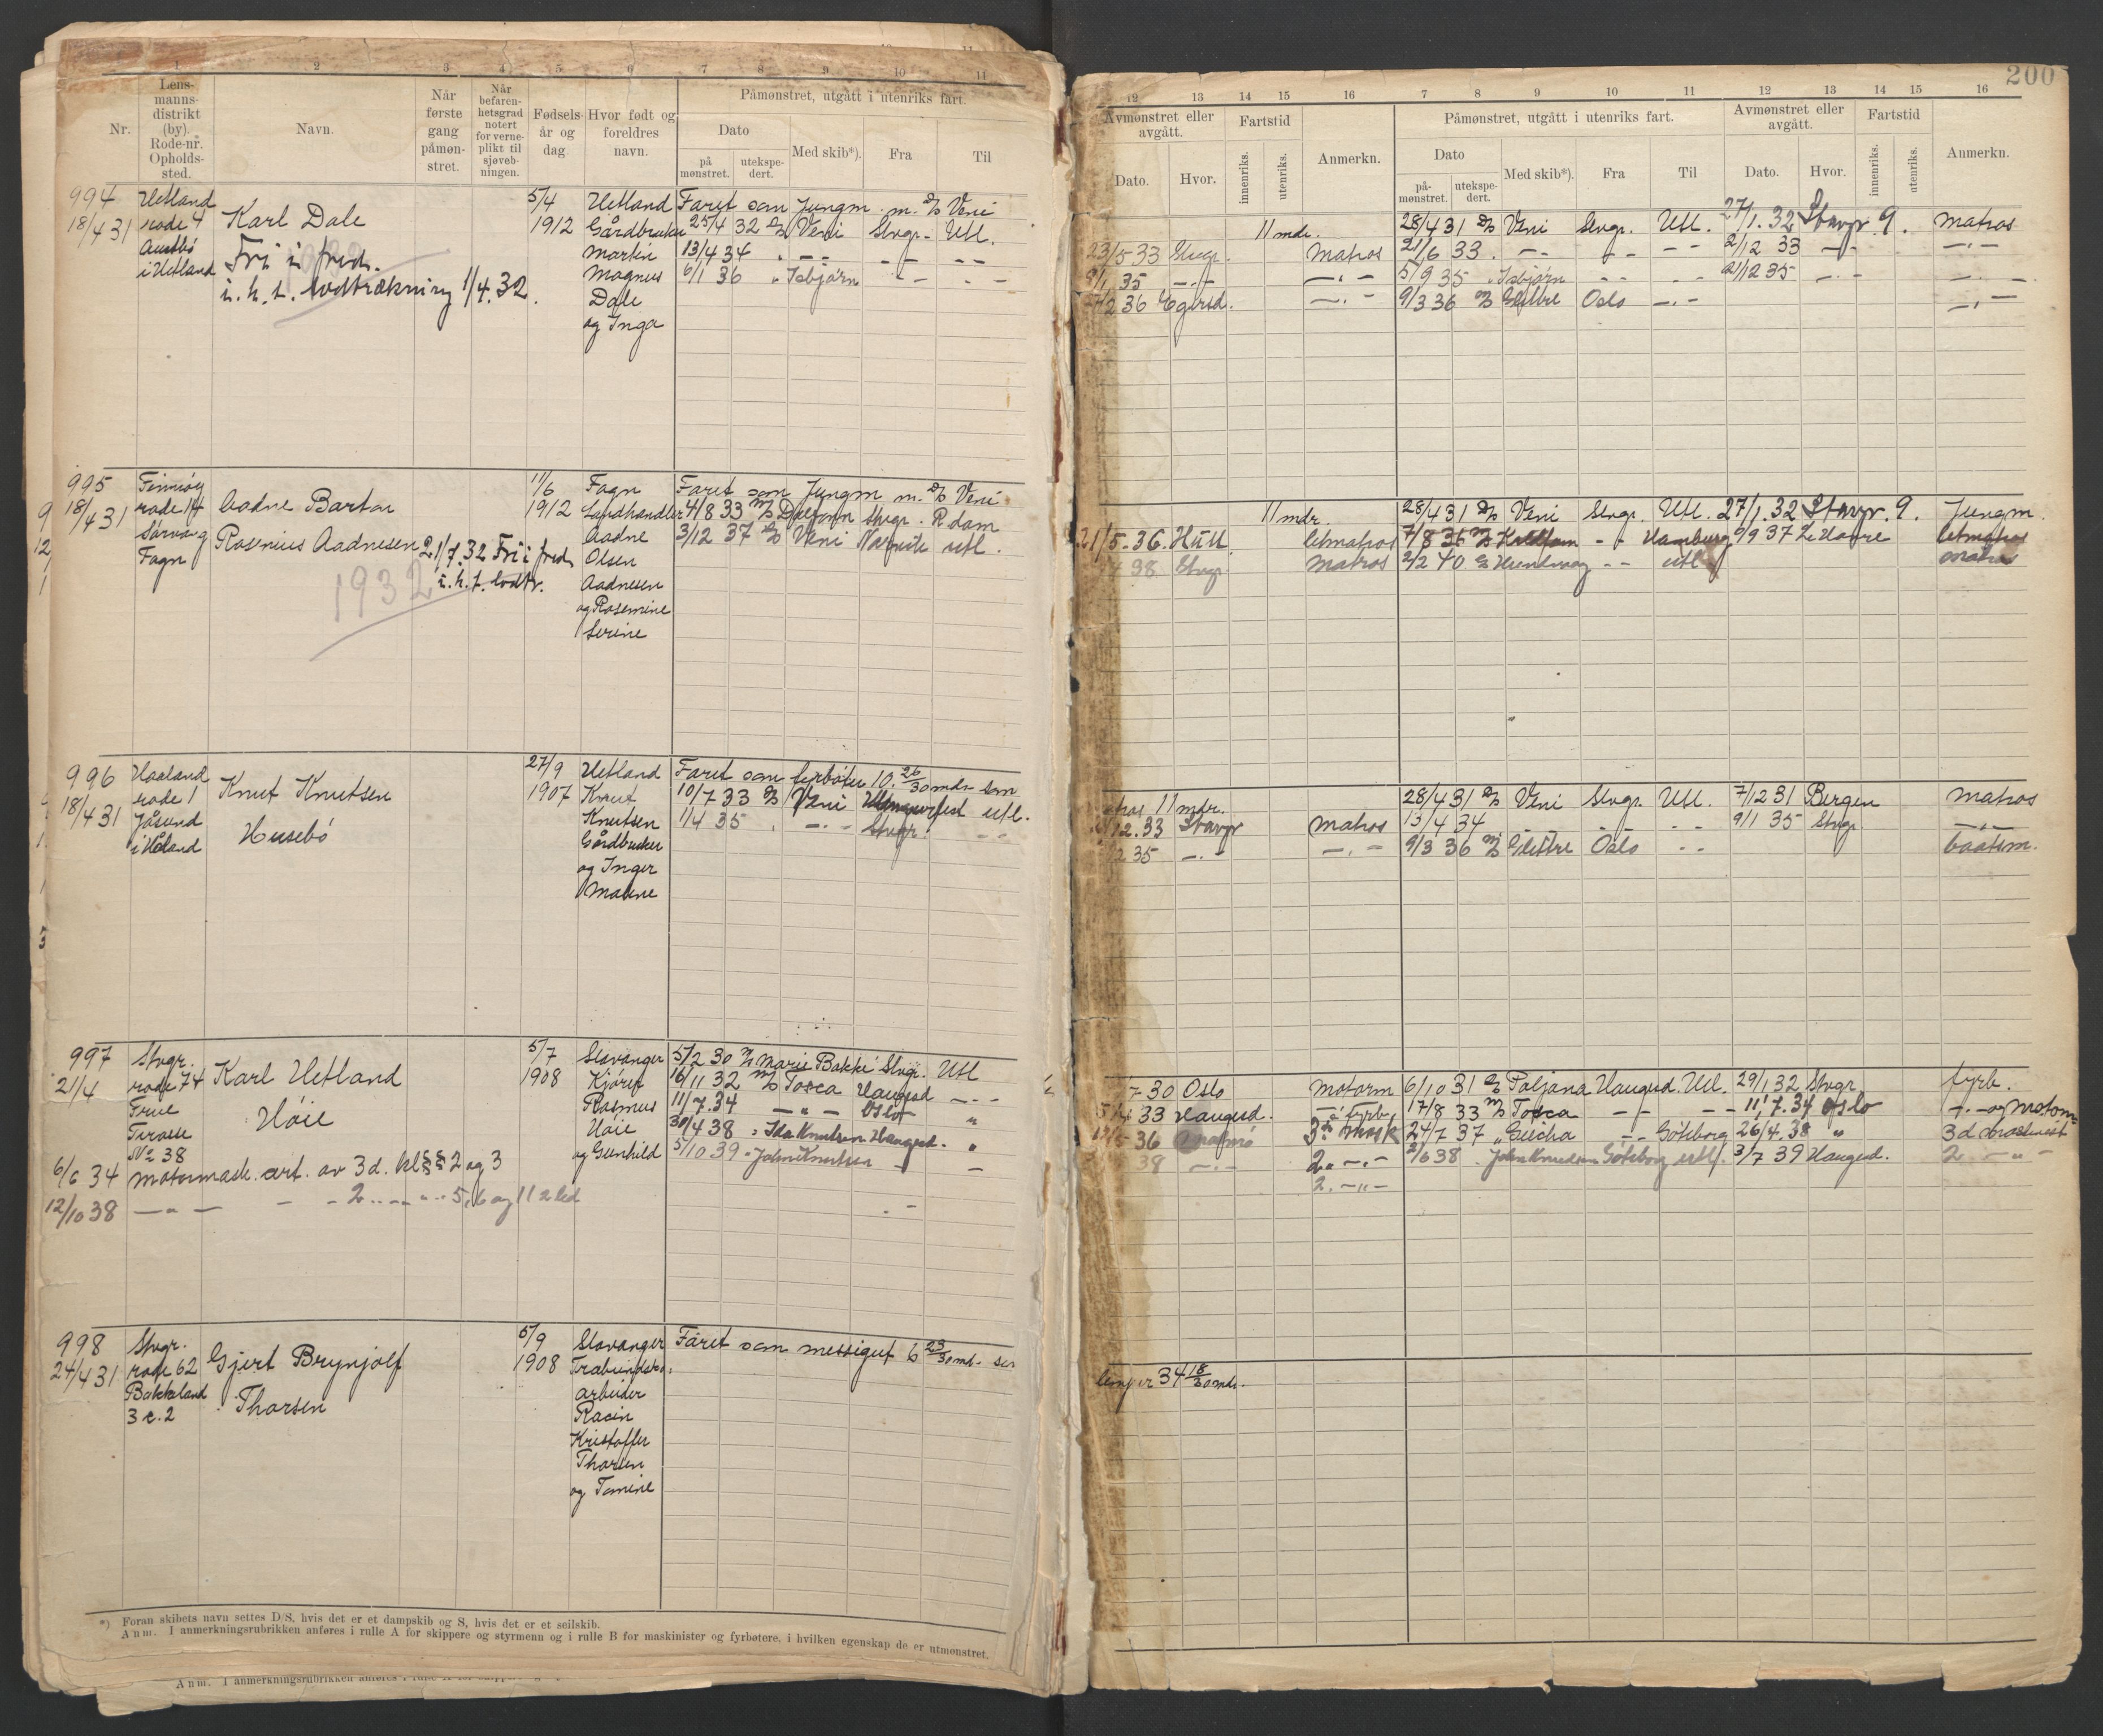 1 2 3 4 5 6 7 8 9 10 11
Nr.
Lens-
manns-
distrikt
(by).
Rode-nr.
Opholds-
sted.
Navn.
Når
første
gang
påmøn-
stret.
Når
befaren-
hetsgrad
notert
for verne-
plikt til
sjøveb-
ningen.
Fødsels-
år og
dag.
Hvor født og
foreldres
navn.
Påmønstret, utgått i utenriks fart.
Dato
på
mønstret.
utekspe-
dert.
Med skib*).
Fra
Til
994 Hetland
18/4 31 rode 4
i Hetland
Karl Dale
Fri i fred.
i. h. t. lodtrækning 1/4.32.
5/4
1912
Hetland
Gårdbruker
Martin
Magnus
Dale
og Inga
Faret som Jungm. m. D/S Veni
25/4 32 D/S Veni Stvgr. Utl.
13/4 34 " — — — — — —
6/1 36 " Isbjörn — — — —
995 Finnöy
18/4 31 rode 14
Fogn
Aadne Barton
Rosenius Aadnesen
21/7.32 Fri i fred
i. h. t. lodtr.
1932
11/6
1912
Fogn
Landhandler
Aadne
Olsen
Aadnesen
og Rosemine
Serine
Faret som Jungm m. D/S Veni
4/8 33 M/S Dalfonn Stvgr. R.dam
3/12 37 D/S Veni utl.
996 Haaland
18/4 31 rode 1
Jåsund
i Håland
Knut Knutsen
Husebö
27/9
1907
Hetland
Knut
Knutsen
Gårdbruker
og Inger
Malene
Faret som fyrböter 10. 26/30 mdr. som
10/7 33 D/S Veni utl.
1/4 35 " — " — Stvgr. — —
997 Stvgr.
21/4 rode 74
Terasse
No 38
Karl Hetland
Höie
5/7
1908
Stavanger
Kjörer
Rasmus
Höie
og Gunhild
5/2 30 M/S Marie Bakke Stvgr. Utl
16/11 32 M/S Tosca Haugesd — " —
11/7.34 — " — Oslo "
30/4 38 " Ida Knutsen Haugesd. "
5/10 39 " John Knutsen — —
6/6 34 motormask. cert. av 3d. kl §§ 2 og 3
12/10 38 — " — — — 2 — " — 5, 6 og 11 2 led
998 Stvgr.
24/4 31 rode 62
Bakkeland
3 c. 2
Gjert Brynjolf
Thorsen
5/9
1908
Stavanger
arbeider
Racin
Kristoffer
Thorsen
og Tomine
Faret som messegut 6 23/30 md. som
*) Foran skibets navn settes D/S, hvis det er et dampskib og S, hvis det er et seilskib.
Anm. I anmerkningsrubrikken anføres i rulle A for skippere og styrmenn og i rulle B for maskinister og fyrbøtere, i hvilken egenskap de er utmønstret.
200
12 13 14 15 16 7 8 9 10 11 12 13 14 15 16
Avmønstret eller
avgått.
Dato.
Hvor.
Fartstid
innenriks.
utenriks.
Anmerkn.
Påmønstret, utgått i utenriks fart.
Dato
på-
mønstret.
utekspe-
dert.
Med skib*).
Fra
Til
Avmønstret eller
avgått.
Dato.
Hvor.
Fartstid
innenriks.
utenriks.
Anmerkn.
11 mdr. 28/4 31 D/S Veni Stvgr. Utl. 27/1.32 Stavgr 9. Matros
23/5 33 Stvgr. Matros 21/6 33 " — — — — — — 2/12 33 — " — — " —
35 — " — — " — 5/9 35 " Isbjörn — — — — 21/12 35 — " — — " —
2 36 Egersd. — " — 9/3 36 M/S Glittre Oslo — " — — " —
11 mdr. 28/4 31 D/S Veni Stvgr. Utl. 27/1.32 Stavgr. 9. Jungm.
21/5.36. Hull letmatros 7/8 36 M/S — — Hamburg 9/9 37 Le Havre letmatros
38 Stvgr Matros 2/2 40 D/S Hundvaag — — utl matros
11 mdr. 28/4 31 D/S Veni Stvgr. Utl. 7/12 31 Bergen Matros
12.33 Stavgr Matros 13/4 34 — — — — — — 9/1 35 Stvgr — " —
2 35 — " — — " — 9/3 36 M/S Glittre Oslo — — baatsm.
7 30 Oslo motorm 6/10 31 D/S Poljana Haugesd. Utl. 29/1 32 Stvgr. fyrb.
33 Haugesd. fyrb. 17/8 33 M/S Tosca — — — — 11/7.34 Oslo — " — og motorm
36 Malmö 3die mask 24/7 37 " Geisha — — Göteborg 26/4.38 " 3d. maskinist
38 — " — 2. — " — 2/6 38 " John Knudsen Göteborg utl. 3/7 39 Haugesd. 2. — " —
2. — " —
lemper 34 18/30 mdr.